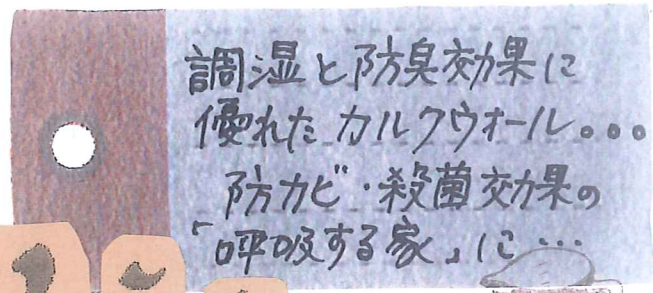 調湿と防臭効果に
優れたカルクウォール。。。
防カビ・殺菌効果の
「呼吸する家」に…